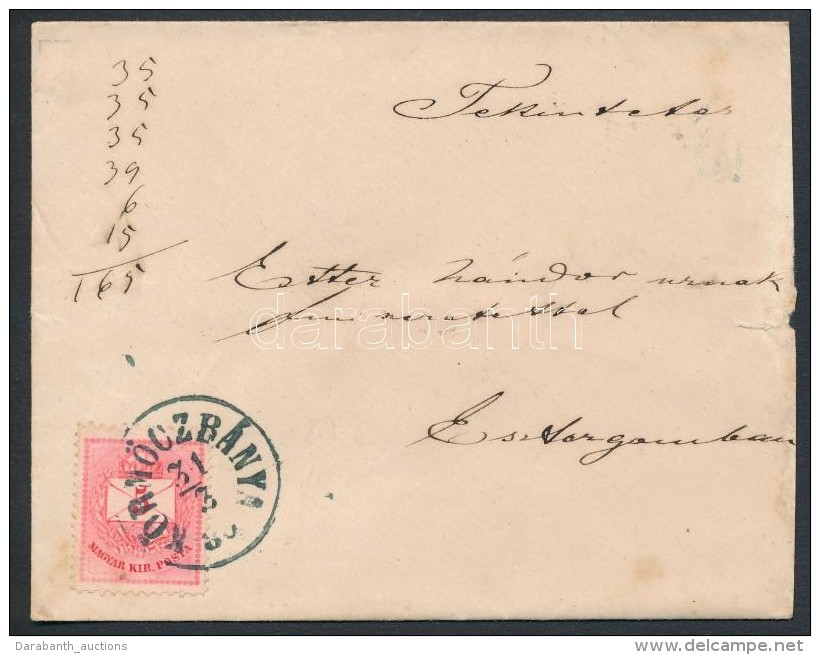 35
35
35
39
6
15
165
Tekintetes
Etter Nándor urnak
Esztergomban
KÖRMÖCZBÁNYA
31/3
MAGYAR KIR. POSTA
darabanth
Darabanth_auctions
www.delcampe.net